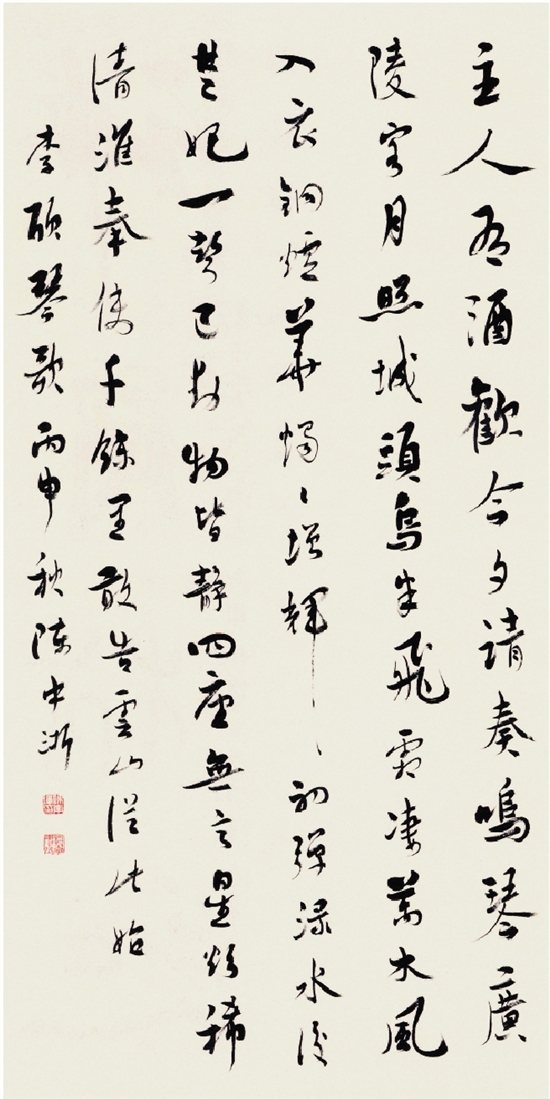 主人有酒歡今夕請奏鳴琴廣
陵客月照城頭烏半飛霜凄萬木風
入衣銅爐華燭々增輝初彈淥水後
楚妃一聲已動物皆靜四座無言星欲稀
清淮奉使千餘里敢告雲山從此始
李頎琴歌丙申秋陳中浙